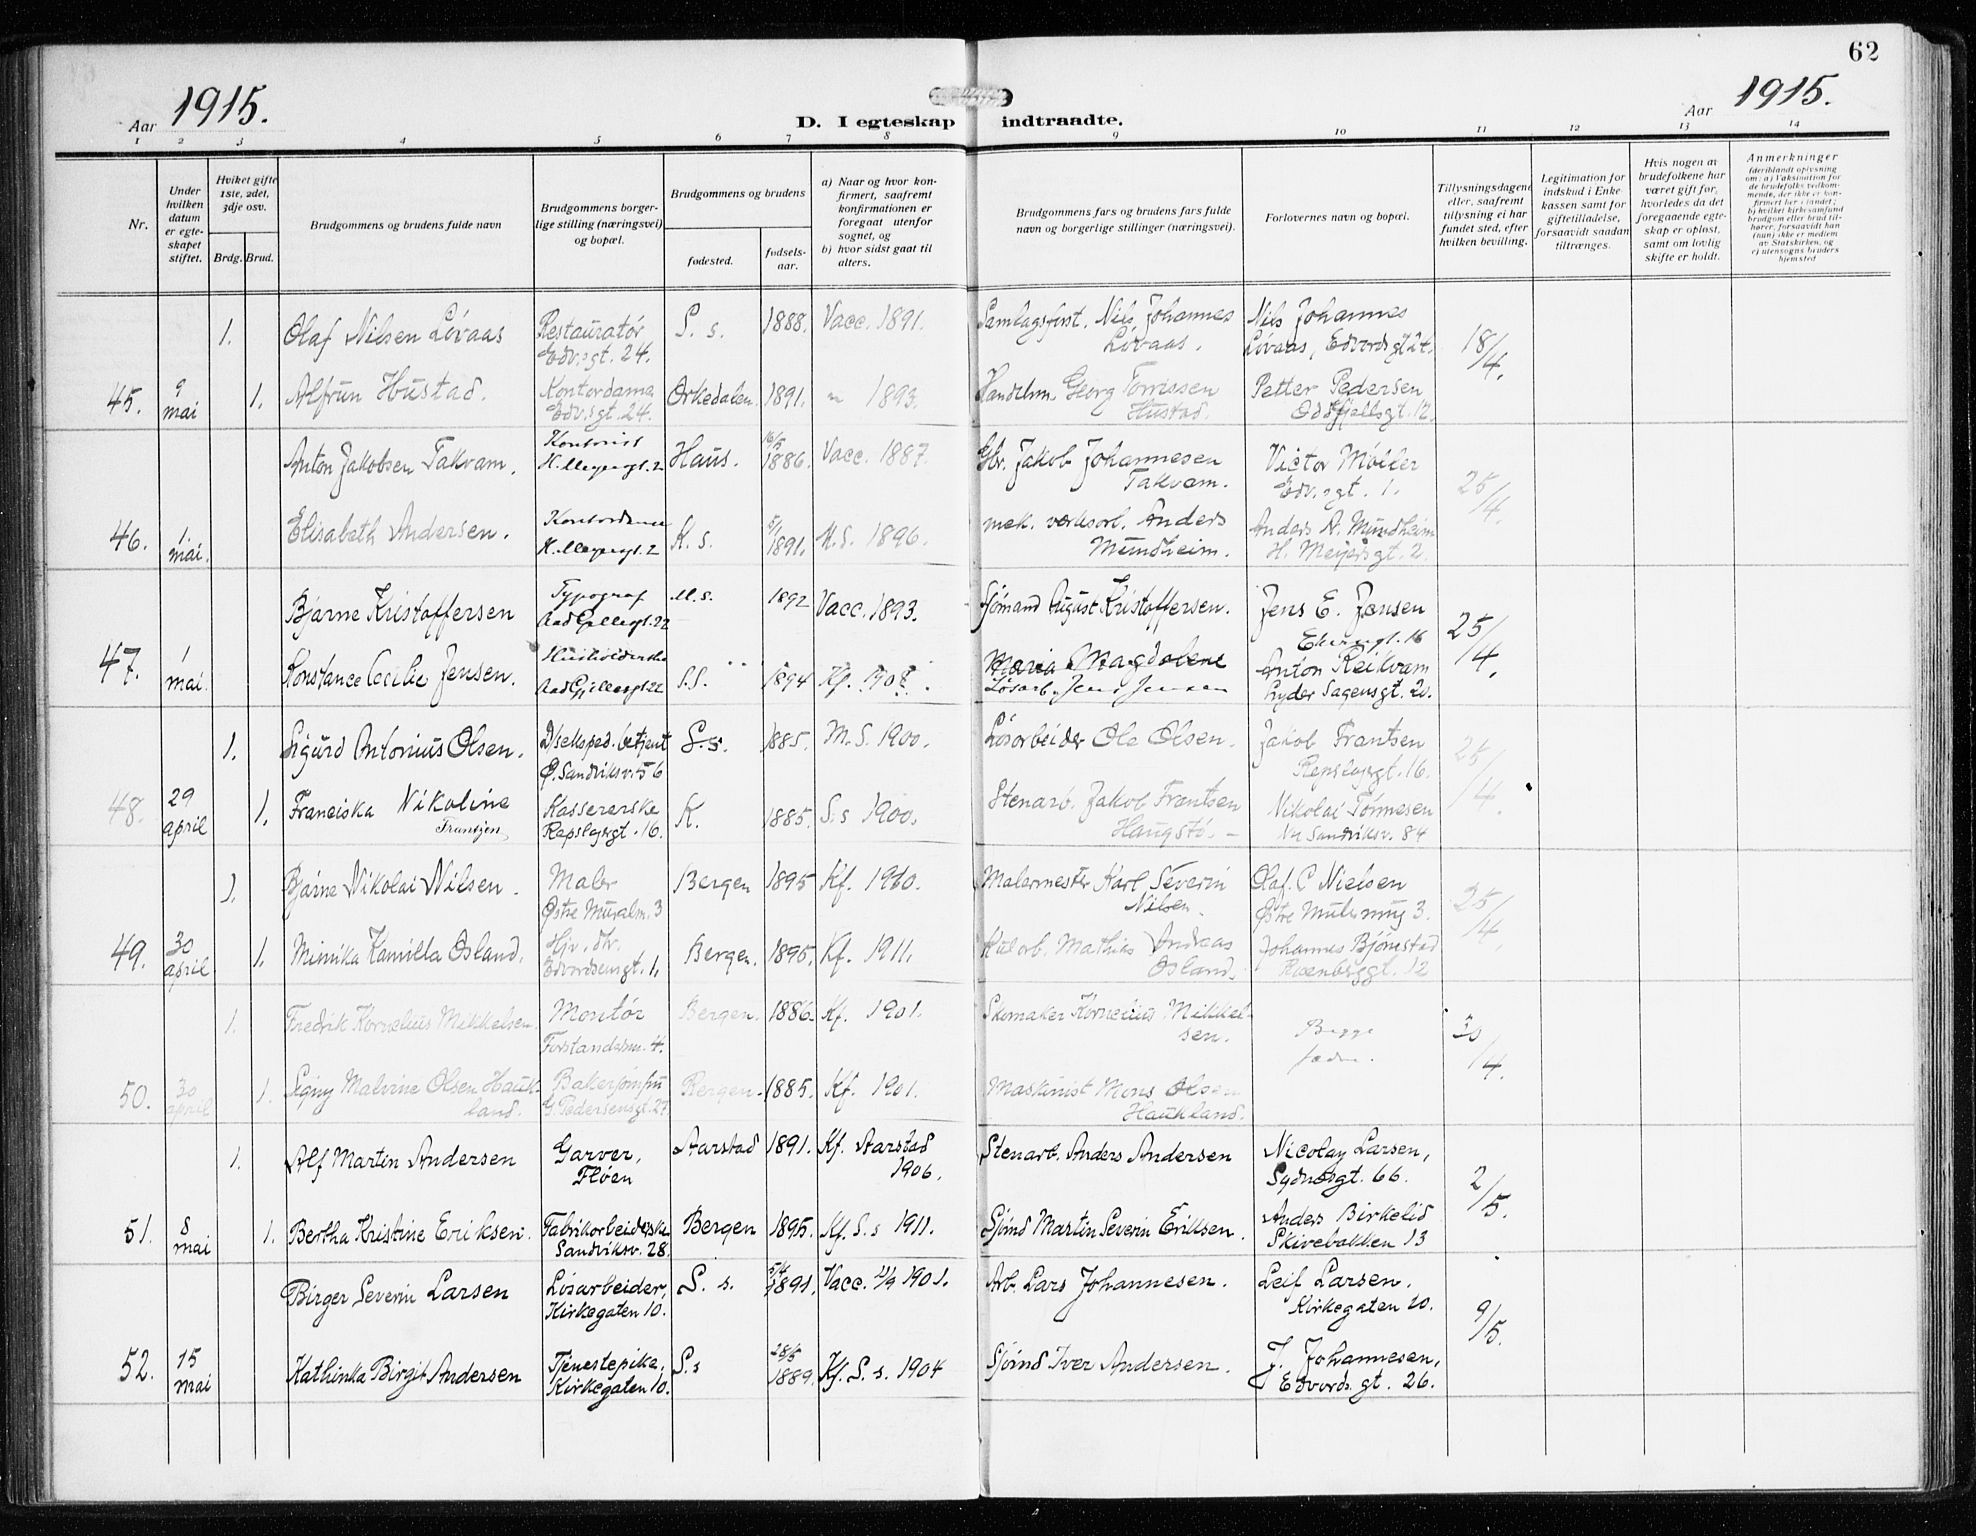 62
Aar 1915.
D. I egteskap indtraadte.
Aar 1915.
1 2 3 4 5 6 7 8 9 10 11 12 13 14
Nr.
Under hvilken datum er egteskapet stiftet.
Hviket gifte 1ste, 2det, 3dje osv.
Brdg. Brud.
Brudgommens og brudens fulde navn
Brudgommens borgerlige stilling (næringsvei) og bopæl.
Brudgommens og brudens
fødested.
fødselsaar.
a) Naar og hvor konfirmert, saafremt konfirmationen er foregaat utenfor sognet, og
b) hvor sidst gaat til alters.
Brudgommens fars og brudens fars fulde navn og borgerlige stillinger (næringsvei).
Forlovernes navn og bopæl.
Tillysningsdagene eller, saafremt tillysning ei har fundet sted, efter hvilken bevilling.
Legitimation for indskud i Enkekassen samt for giftetilladelse, forsaavidt saadan tiltrænges.
Hvis nogen av brudefolkene har været gift før, hvorledes da det foregaaende egteskap er opløst, samt om lovlig skifte er holdt.
Anmerkninger
1. Olaf Nilsen Løvaas Restauratør S. s. 1888. Vacc. 1891. Samlagsbest. Nils Johannes Nils Johannes 18/4.
Edv.sgt. 24. Løvaas. Løvaas, Edvardsgt 24.
45. 9 mai 1. Alfrun Hustad. Kontordame Orkedalen. 1891. " 1893. Handelsm. Georg Torrissen Petter Pedersen
Edv.sgt. 24. Hustad. Oddfjellsgt. 12.
Anton Jakobsen Takvam. Kontorist Haus. 16/5 1886. Vacc. 1887. Gbr. Jakob Johannesen Victor Møller 25/4.
H. Meyersgt. 2 Takvam. Edv.sgt. 1.
46. 1 mai. Elisabeth Andersen. Kontordame K. s. 5/1 1891. M.S. 1896. mek. verksarb. Anders Anders A. Mundheim
H. Meyersgt. 2 Mundheim. H. Meyersgt. 2.
Bjarne Kristoffersen Typograf M. s. 1892 Vacc. 1893. Sjømand August Kristoffersen. Jens E. Jensen 25/4.
Aad Gjellesgt. 22
47. 1 mai. Konstance Cecilie Jensen. S.S. 1894 Maria Magdalene Anton Reikvam
Aad Gjellesgt 22 Løsarb. Jens Jensen Lyder Sagensgt. 20.
1. Sigurd Antonius Olsen. D/seksped. betjent S. s. 1885. M.S. 1900. Løsarbeider Ole Olsen. Jakob Frantsen 25/4.
Ø. Sandviksv. 56 Repslagergt. 16.
48. 29 april 1. Franciska Nikoline Kassererske K. 1885. S.s 1900. Stenarb. Jakob Frantsen Nikolai Tønnesen
Frantzen, Repslagergt. 16. Ny Sandviksv. 84
1. Bjarne Nikolai Nilsen. Maler Bergen 1895 Kf. 1910. Malermester Karl Severin Olaf. C Nielsen 25/4.
Østre Muralm. 3 Nilsen. Østre Mulesmug 3.
49. 30 april 1. Minnika Kamilla Osland. Hjv. dtr. Bergen. 1895. Kf. 1911. Kularb. Mathias Andreas Johannes Bjørnstad
Edvardsensgt. 1. Osland. Rosenberggt. 12
1. Fredrik Kornelius Mikkelsen. Montør Bergen. 1886. Kf. 1901. Skomaker Kornelius Mikkelsen. Begge fædre. 30/4.
Forstandersm. 4.
50. 30 april 1. Signy Malvine Olsen Haukland. Bakerjomfru Bergen. 1885. Kf. 1901. Maskinist Mons Olsen
G. Pedersensgt. 27. Haukland.
1. Alf Martin Andersen Garver, Aarstad 1891. Kf. Aarstad 1906. Stenarb. Anders Andersen Nicolay Larsen, 2/5.
Fløen Sydnesgt. 66.
51. 8 mai 1. Bertha Kristine Eriksen. Fabrikarbeiderske Bergen 1895. Kf. S.s 1911. Sjømd Martin Severin Eriksen. Anders Birkelid
Sandviksv. 28. Skivebakken 13
Birger Severin Larsen Løsarbeider, S. s. 5/4 1891. Vacc. 11/9 1901. Arb. Lars Johannesen. Leif Larsen. 9/5.
Kirkegaten 10. Kirkegaten 10.
52. 15 mai Kathinka Birgit Andersen Tjenestepike, S. s 28/5 1889. Kf. S. s. 1904 Sjømd Iver Andersen. J. Johannesen,
Kirkegaten 10. Edvards.gt. 26.